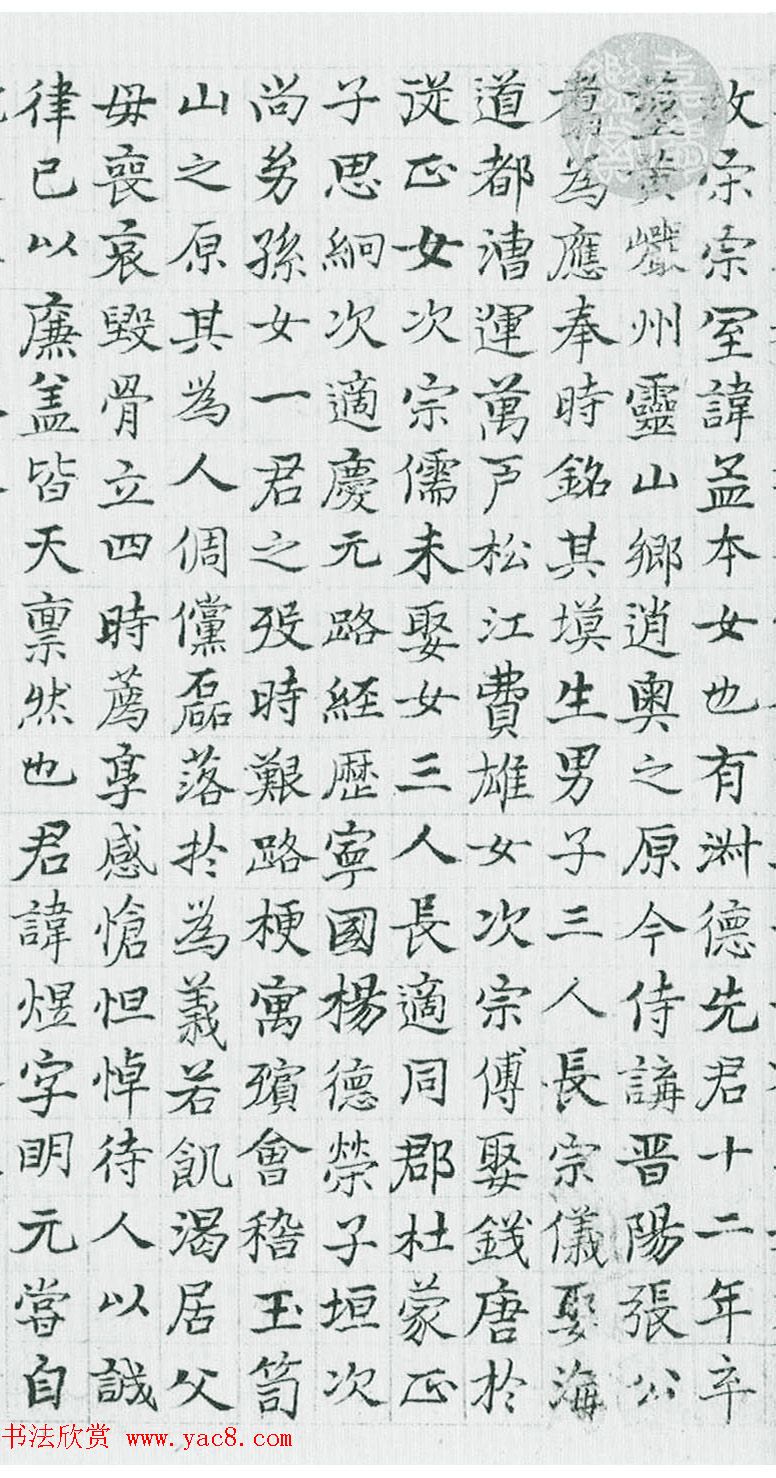 故宋宗室諱孟本女也有淑德先君十二年卒
葬黃巖州靈山鄉逍奧之原今侍講晋陽張公
翥為應奉時銘其塻生男子三人長宗儀娶海
道都漕運萬戶松江費雄女次宗傅娶錢唐於
從正女次宗儒未娶女三人長適同郡杜蒙正
子思絅次適慶元路経歷寧國楊德榮子垣次
尚㓜孫女一君之歿時艱路梗寓殯會稽玉笥
山之原其為人倜儻磊落扵為義若飢渴居父
毋喪哀毀骨立四時薦享感愴怛悼待人以誠
律已以廉盖皆天禀然也君諱煜字明元嘗自
嘉慶鑑賞
书法欣赏 www.yac8.com